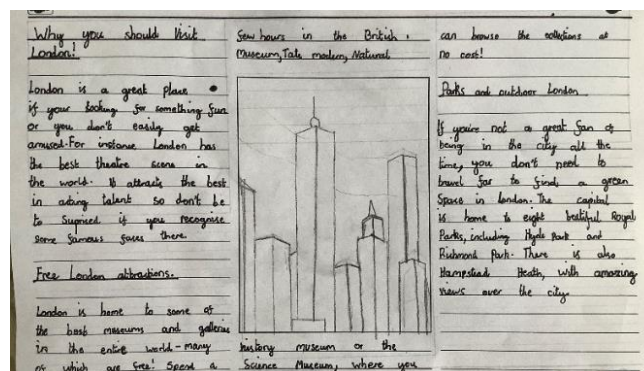 Why you should Visit
London!
London is a great place
if your looking for something fun
or you don't easily get
amused. For instance London has
the best theatre scene in
the world. It attracts the best
in acting talent so don't be
to Suprised if you recognise
some famous faces there
Free London attractions.
London is home to some of
the best museums and galleries
in the entire world - many
of which are free! Spend a
few hours in the British
Museum, Tate modern, Natural
history museum or the
Science Museum, where you
can browse the collections at
no cost!
Parks and outdoor London
If you're not a great fan of
being in the city all the
time, you don't need to
travel far to find a green
Space in London. The capital
is home to eight beatiful Royal
Parks, including Hyde Park and
Richmond Park. There is also
Hampstead Heath, with amazing
views over the city